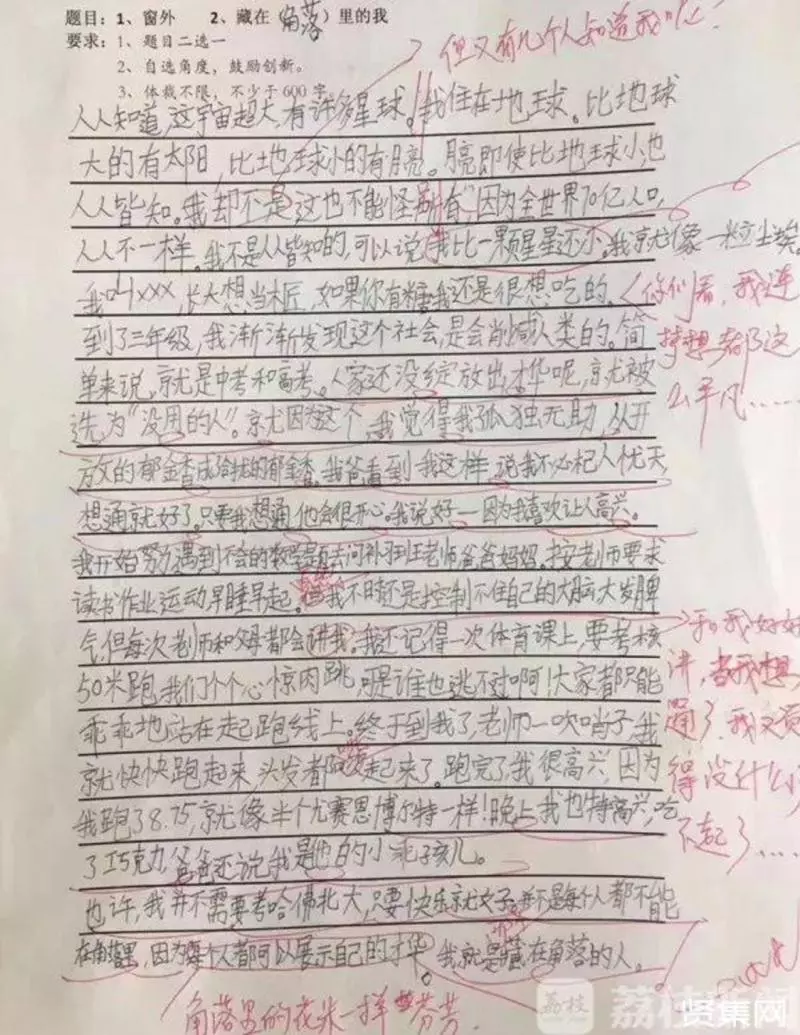 题目：1、窗外 2、藏在（角落）里的我
要求：1、题目二选一
2、自选角度，鼓励创新。
3、体裁不限，不少于600字。
但又有几个人知道我呢？
人人知道，这宇宙超大，有许多星球。我住在地球。比地球
大的有太阳，比地球小的有月亮。月亮即使比地球小，也
人人皆知。我却不是这也不能怪所有"因为全世界70亿人口，
人人不一样。我不是人人皆知的，可以说，我比一颗星星还小。我就像一粒尘埃。
我叫xxx，长大想当木匠，如果你有糖我还是很想吃的。
你们看，我连
梦想都这
么平凡……
到了三年级，我渐渐发现这个社会，是会削减人类的。简
单来说，就是中考和高考。人家还没绽放出才华呢，就被
选为"没用的人"。就因为这个，我觉得我孤独无助，从开
放的郁金香成给扰的郁金香。我爸看到我这样，说我不必杞人忧天，
想通就好了。只要我想通，他会很开心。我说好——因为我喜欢让人高兴。
我开始努力，遇到不会的数学题去问补习班老师爸爸妈妈。按老师要求
读书作业运动早睡早起。但我不时还是控制不住自己的大脑大发脾
气，但每次老师和父母都会讲我。我还记得一次体育课上，要考核
50米跑，我们个个心惊肉跳，可是谁也逃不过啊！大家都只能
乖乖地站在起跑线上。终于到我了，老师一吹哨子，我
就快快跑起来，头发都起来了。跑完了，我很高兴，因为
我跑了8.75，就像半个尤赛恩博尔特一样！晚上，我也特高兴，吃
了巧克力，爸爸还说我是他的小乖孩儿。
和我好好
讲，当我想
通了，我又觉
得没什么
不起了……
也许，我并不需要考哈佛北大，只要快乐就好，并不是每个人都不能
在角落里，因为每个人都可以展示自己的才华。我就是藏在角落的人。
角落里的花朵一样芬芳
荔枝
贤集网